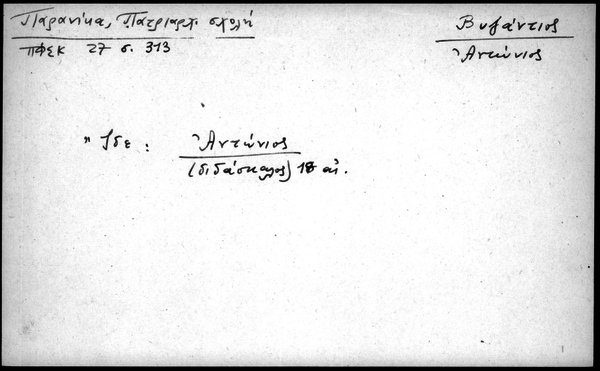 Παρανίκα, Πατριαρχ. σχολή
ΠΦΣΚ 27 σ. 313
Βυζάντιος
Ἀντώνιος
Ἴδε: Ἀντώνιος
(διδάσκαλος) 18 αἰ.